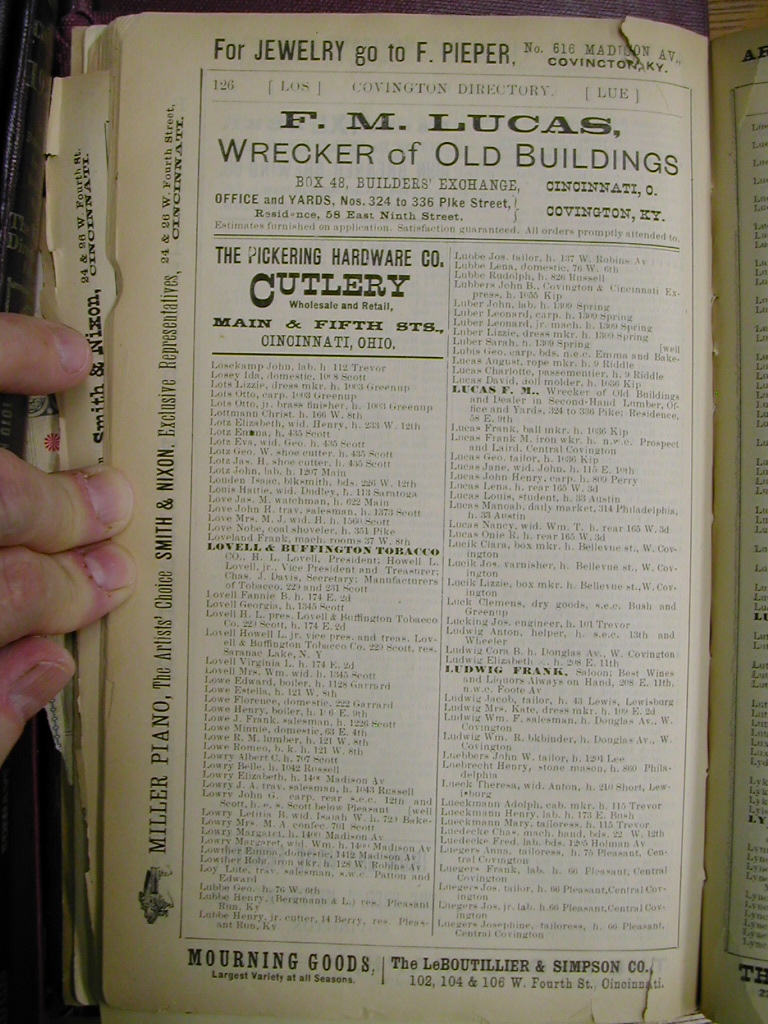 For JEWELRY go to F. PIEPER, No. 616 MADISON AV., COVINGTON, KY.
126 [ LOS ] COVINGTON DIRECTORY. [ LUE ]
F. M. LUCAS,
WRECKER of OLD BUILDINGS
BOX 48, BUILDERS' EXCHANGE, CINCINNATI, O.
OFFICE and YARDS, Nos. 324 to 336 Pike Street,
Residence, 58 East Ninth Street. COVINGTON, KY.
Estimates furnished on application. Satisfaction guaranteed. All orders promptly attended to.
THE PICKERING HARDWARE CO.
CUTLERY
Wholesale and Retail,
MAIN & FIFTH STS.,
CINCINNATI, OHIO.
Losekamp John, lab. h. 112 Trevor
Losey Ida, domestic, 1048 Scott
Lots Lizzie, dress mkr. h. 1003 Greenup
Lots Otto, carp. 1003 Greenup
Lots Otto, jr. brass finisher, h. 1003 Greenup
Lottmann Christ. h. 166 W. 8th
Lotz Elizabeth, wid. Henry, h. 233 W. 12th
Lotz Emma, h. 435 Scott
Lotz Eva, wid. Geo. h. 435 Scott
Lotz Geo. W. shoe cutter, h. 435 Scott
Lotz Jas. H. shoe cutter, h. 435 Scott
Lotz John, lab. h. 1207 Main
Louden Isaac, blksmith, bds. 226 W. 12th
Louis Hattie, wid. Dudley, h. 113 Saratoga
Love Jas. M. watchman, h. 622 Main
Love John R. trav. salesman, h. 1373 Scott
Love Mrs. M. J. wid. H. h. 1560 Scott
Love Nobe, coal shoveler, h. 351 Pike
Loveland Frank, mach. rooms 37 W. 8th
LOVELL & BUFFINGTON TOBACCO
CO., H. L. Lovell, President; Howell L.
Lovell, jr., Vice President and Treasurer;
Chas. J. Davis, Secretary; Manufacturers
of Tobacco, 229 and 231 Scott
Lovell Fannie B. h. 174 E. 2d
Lovell Georgia, h. 1345 Scott
Lovell H. L. pres. Lovell & Buffington Tobacco
Co. 229 Scott, h. 174 E. 2d
Lovell Howell L. jr. vice pres. and treas. Lov-
ell & Buffington Tobacco Co. 229 Scott, res.
Sarnac Lake, N. Y
Lovell Virginia L. h. 174 E. 2d
Lovell Mrs. Wm. wid. h. 1345 Scott
Lowe Edward, boiler, h. 1128 Garrard
Lowe Estella, h. 121 W. 8th
Lowe Florence, domestic, 222 Garrard
Lowe Henry, boiler, h. E. 9th
Lowe J. Frank, salesman, h. 1226 Scott
Lowe Minnie, domestic, 63 E. 4th
Lowe R. M. lumber, h. 121 W. 8th
Lowe Romeo, b. k. h. 121 W. 8th
Lowry Albert C. h. 707 Scott
Lowry Belle, h. 1042 Russell
Lowry Elizabeth, h. Madison Av
Lowry J. A. trav. salesman, h. 1043 Russell
Lowry John G. carp. rear s.e.c. 12th and
Scott, h. e. s. Scott below Pleasant [well
Lowry Letitia B. wid. Isaiah W. h. Bake-
Lowry Mrs. M. A. confec. 701 Scott
Lowry Margaret, h. Madison Av
Lowry Margaret, wid. Wm. h. Madison Av
Lowther Emma, domestic, 1412 Madison Av
Lowther Robt. iron wkr. h. 128 W. Robins Av
Loy Lute, trav. salesman, s.w.c. Patton and
Edward
Lubbe Geo. h. 76 W. 6th
Lubbe Henry, (Bergmann & L.) res. Pleasant
Run, Ky
Lubbe Henry, jr. cutter, 14 Berry, res. Pleas-
ant Run, Ky
Lubbe Jos. tailor, h. 137 W. Robins Av
Lubbe Lena, domestic, 76 W. 6th
Lubbe Rudolph, h. 826 Russell
Lubbers John B., Covington & Cincinnati Ex-
press, h. 1055 Kip
Luber John, lab. h. 1309 Spring
Luber Leonard, carp. h. 1309 Spring
Luber Leonard, jr. mach. h. 1309 Spring
Luber Lizzie, dress mkr. h. 1309 Spring
Luber Sarah, h. 1309 Spring [well
Lubis Geo. carp. bds. n.e.c. Emma and Bake-
Lucas August, rope mkr. h. 9 Riddle
Lucas Charlotte, passementier, h. 9 Riddle
Lucas David, doll molder, h. 1036 Kip
LUCAS F. M., Wrecker of Old Buildings
and Dealer in Second-Hand Lumber, Of-
fice and Yards, 324 to 336 Pike; Residence,
58 E. 9th
Lucas Frank, ball mkr. h. 1036 Kip
Lucas Frank M. iron wkr. h. n.w.c. Prospect
and Laird, Central Covington
Lucas Geo. tailor, h. 1036 Kip
Lucas Jane, wid. John, h. 115 E. 10th
Lucas John Henry, carp. h. 809 Perry
Lucas Lena, h. rear 165 W. 3d
Lucas Louis, student, h. 33 Austin
Lucas Manoah, daily market, 314 Philadelphia,
h. 33 Austin
Lucas Nancy, wid. Wm. T. h. rear 165 W. 3d
Lucas Onie R. h. rear 165 W. 3d
Lucik Clara, box mkr. h. Bellevue st., W. Cov-
ington
Lucik Jos. varnisher, h. Bellevue st., W. Cov-
ington
Lucik Lizzie, box mkr. h. Bellevue st., W. Cov-
ington
Luck Clemens, dry goods, s.e.c. Bush and
Greenup
Lucking Jos. engineer, h. 101 Trevor
Ludwig Anton, helper, h. s.e.c. 13th and
Wheeler
Ludwig Cora B. h. Douglas Av., W. Covington
Ludwig Elizabeth h. 208 E. 11th
LUDWIG FRANK, Saloon; Best Wines
and Liquors Always on Hand, 208 E. 11th,
n.w.c. Foote Av
Ludwig Jacob, tailor, h. 43 Lewis, Lewisburg
Ludwig Mrs. Kate, dress mkr. h. 109 E. 2d
Ludwig Wm. F. salesman, h. Douglas Av., W.
Covington
Ludwig Wm. R. bkbinder, h. Douglas Av., W.
Covington
Luebbers John W. tailor, h. 1201 Lee
Luebrecht Henry, stone mason, h. 860 Phila-
delphia
Lueck Theresa, wid. Anton, h. 210 Short, Lew-
isburg
Lueckmann Adolph, cab. mkr. h. 115 Trevor
Lueckmann Henry, lab. h. 173 E. Bush
Lueckmann Mary, tailoress, h. 115 Trevor
Luedecke Chas. mach. hand, bds. 22 W. 12th
Luedecke Fred, lab. bds. 1205 Holman Av
Luegers Anna, tailoress, h. 75 Pleasant, Cen-
tral Covington
Luegers Frank, lab. h. 66 Pleasant, Central
Covington
Luegers Jos. tailor, h. 66 Pleasant, Central Cov-
ington
Luegers Jos. jr. lab. h. 66 Pleasant, Central Cov-
ington
Luegers Josephine, tailoress, h. 66 Pleasant,
Central Covington
MOURNING GOODS, Largest Variety at all Seasons.
The LeBOUTILLIER & SIMPSON CO.,
102, 104 & 106 W. Fourth St., Cincinnati.
MILLER PIANO, The Artists' Choice SMITH & NIXON, Exclusive Representatives, 24 & 26 W. Fourth Street, CINCINNATI.
Smith & Nixon, 24 & 26 W. Fourth St. CINCINNATI.